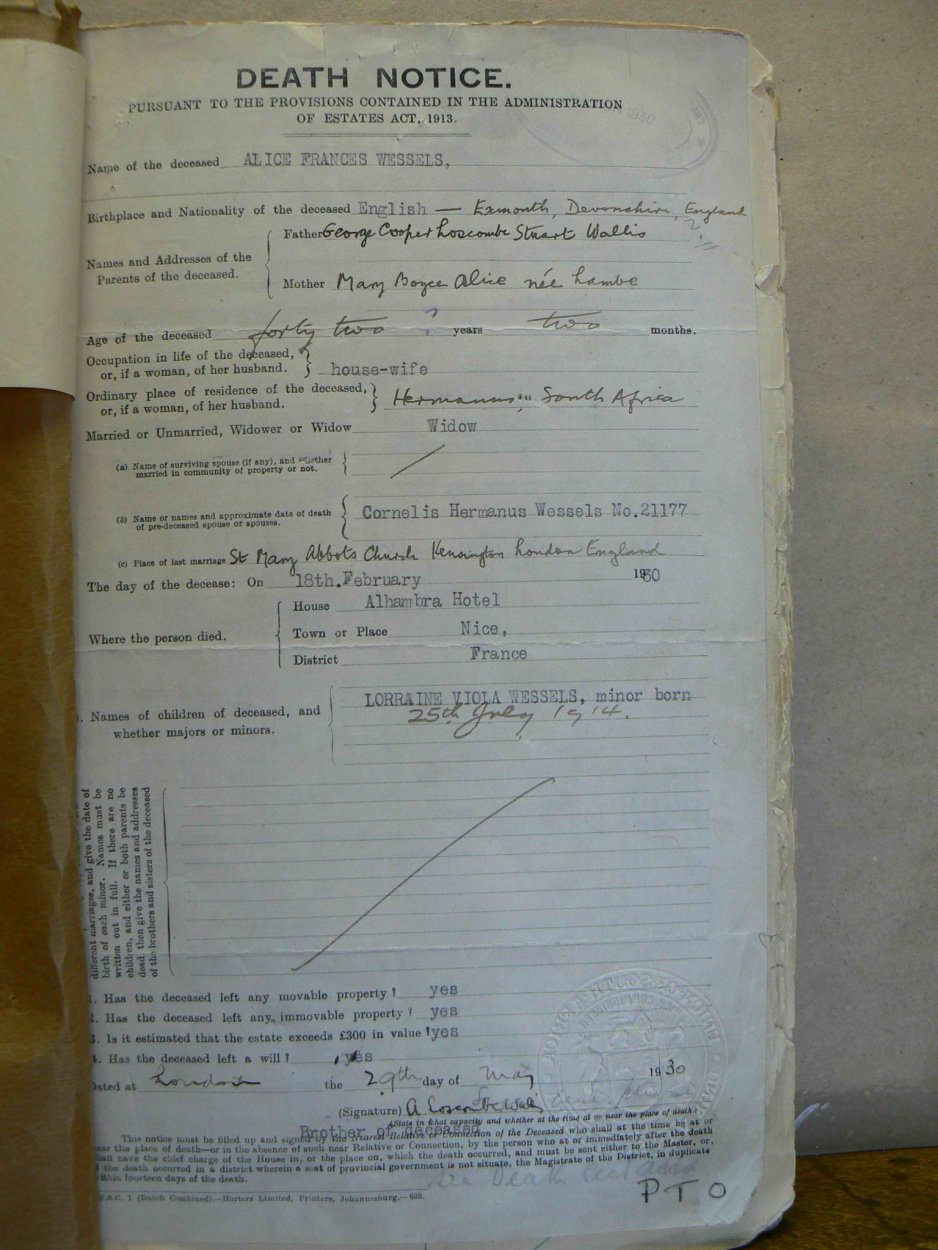 DEATH NOTICE.
PURSUANT TO THE PROVISIONS CONTAINED IN THE ADMINISTRATION
OF ESTATES ACT, 1913.
1930
Name of the deceased ALICE FRANCES WESSELS,
Birthplace and Nationality of the deceased English — Exmouth, Devonshire, England
Names and Addresses of the
Parents of the deceased.
Father George Cooper Loscombe Stuart Wallis
Mother Mary Boyce Alice née Lambe
Age of the deceased forty two ? years two months.
Occupation in life of the deceased,
or, if a woman, of her husband. house-wife
Ordinary place of residence of the deceased,
or, if a woman, of her husband. Hermanus, South Africa
Married or Unmarried, Widower or Widow Widow
(a) Name of surviving spouse (if any), and whether
married in community of property or not.
(b) Name or names and approximate date of death
of pre-deceased spouse or spouses. Cornelis Hermanus Wessels No.21177
(c) Place of last marriage St Mary Abbots Church Kensington London England
The day of the decease: On 18th.February 1930
Where the person died.
House Alhambra Hotel
Town or Place Nice,
District France
Names of children of deceased, and
whether majors or minors.
LORRAINE VIOLA WESSELS, minor born
25th July 1914.
different marriages, and give the date of
birth of each minor. Names must be
written out in full. If there are no
children, and either or both parents be
dead, then give the names and addresses
of the brothers and sisters of the deceased
1. Has the deceased left any movable property? yes
2. Has the deceased left any immovable property? yes
3. Is it estimated that the estate exceeds £300 in value? yes
4. Has the deceased left a will? yes
Dated at London the 29th day of May 1930
(Signature) A Loscombe Wallis
(State in what capacity and whether at the time at or near the place of death.)
Brother of deceased
This notice must be filled up and signed by the Nearest Relative or Connection of the Deceased who shall at the time be at or
near the place of death—or in the absence of such near Relative or Connection, by the person who at or immediately after the death
shall have the chief charge of the House in, or the place on, which the death occurred, and must be sent either to the Master, or,
if the death occurred in a district wherein a seat of provincial government is not situate, the Magistrate of the District, in duplicate
within fourteen days of the death.
see Death
P T O
M.S.C. 1 (Dutch Combined).—Hortors Limited, Printers, Johannesburg.—628.